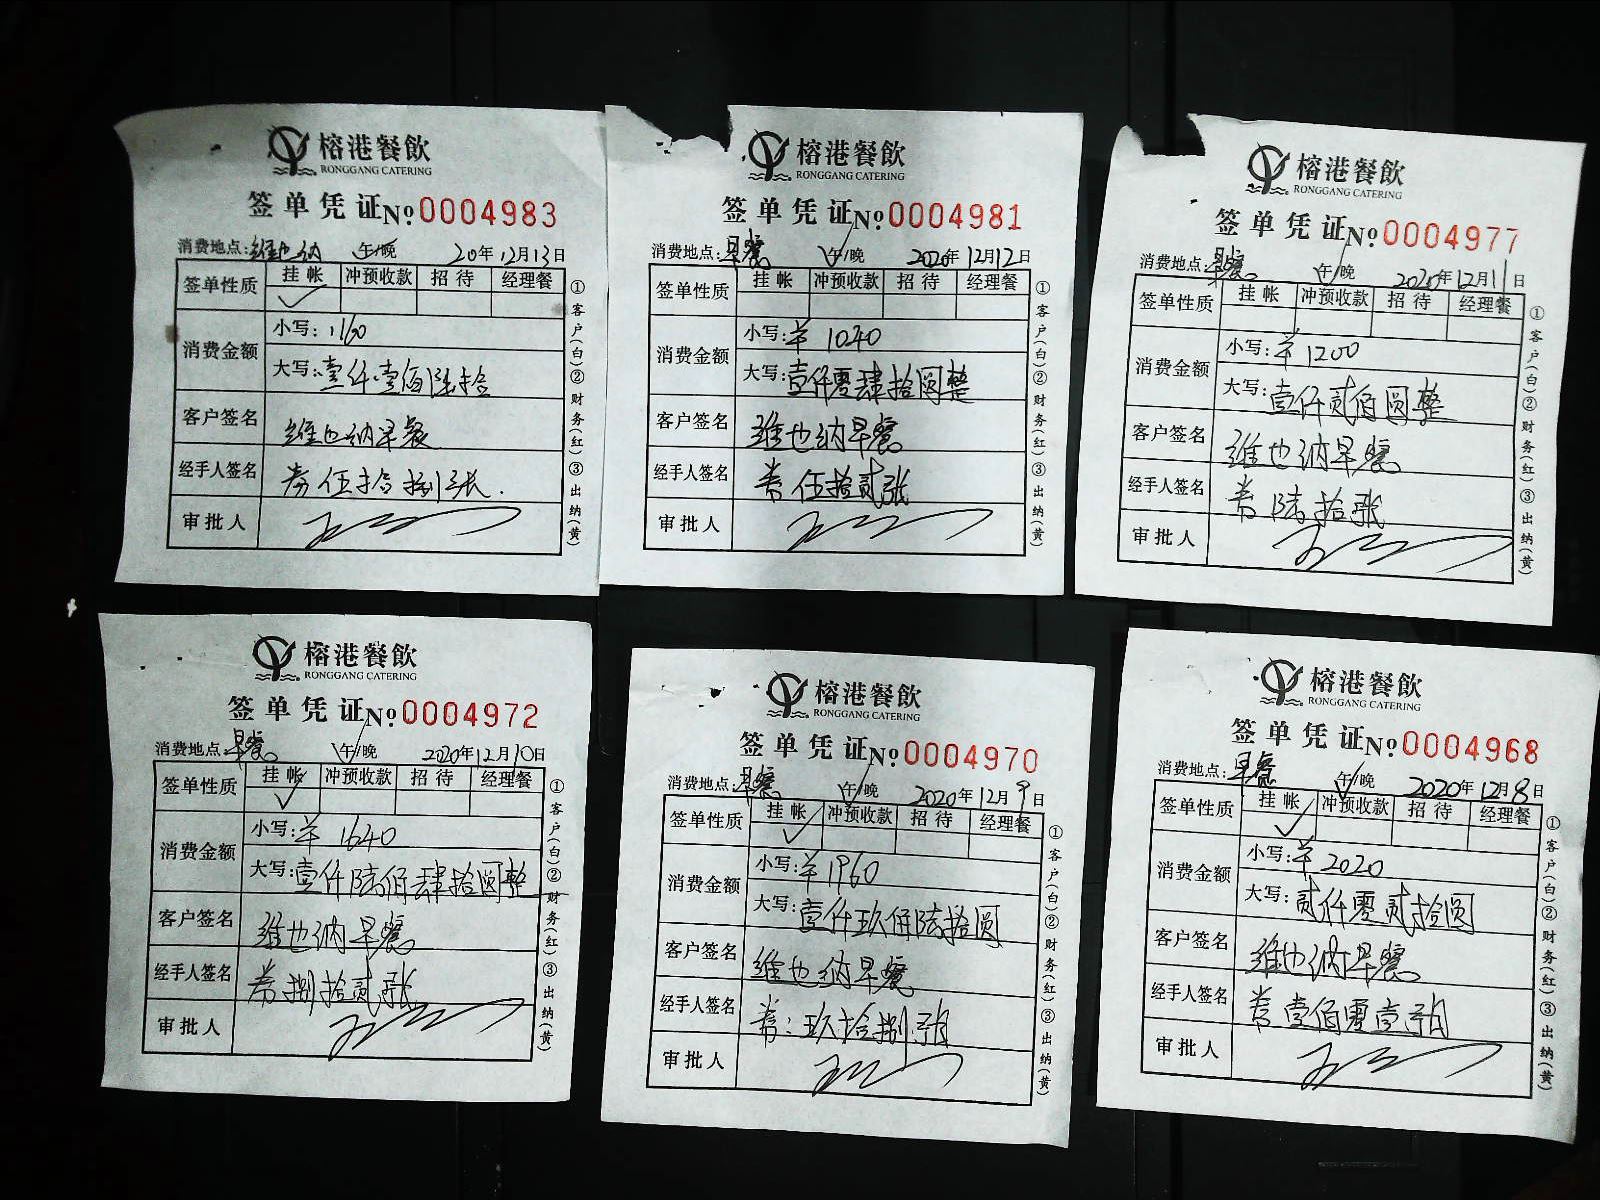 榕港餐飲
RONGGANG CATERING
签单凭证 №0004983
消费地点:维也纳 午/晚 20年12月13日
签单性质 挂帐 冲预收款 招待 经理餐
✓
消费金额 小写:1160
大写:壹仟壹佰陆拾
客户签名 维也纳早餐
经手人签名 券伍拾捌张.
审批人
①客户(白)②财务(红)③出纳(黄)
榕港餐飲
RONGGANG CATERING
签单凭证 №0004981
消费地点:早餐 午/晚 2020年12月12日
签单性质 挂帐 冲预收款 招待 经理餐
消费金额 小写:羊1040
大写:壹仟零肆拾圆整
客户签名 维也纳早餐
经手人签名 券伍拾贰张
审批人
①客户(白)②财务(红)③出纳(黄)
榕港餐飲
RONGGANG CATERING
签单凭证 №0004977
消费地点:早餐 午/晚 2020年12月11日
签单性质 挂帐 冲预收款 招待 经理餐
消费金额 小写:羊1200
大写:壹仟贰佰圆整
客户签名 维也纳早餐
经手人签名 券陆拾张
审批人
①客户(白)②财务(红)③出纳(黄)
榕港餐飲
RONGGANG CATERING
签单凭证 №0004972
消费地点:早餐 午/晚 2020年12月10日
签单性质 挂帐 冲预收款 招待 经理餐
✓
消费金额 小写:羊1640
大写:壹仟陆佰肆拾圆整
客户签名 维也纳早餐
经手人签名 券捌拾贰张
审批人
①客户(白)②财务(红)③出纳(黄)
榕港餐飲
RONGGANG CATERING
签单凭证 №0004970
消费地点:早餐 午/晚 2020年12月9日
签单性质 挂帐 冲预收款 招待 经理餐
✓
消费金额 小写:羊1960
大写:壹仟玖佰陆拾圆
客户签名 维也纳早餐
经手人签名 券:玖拾捌张
审批人
①客户(白)②财务(红)③出纳(黄)
榕港餐飲
RONGGANG CATERING
签单凭证 №0004968
消费地点:早餐 午/晚 2020年12月8日
签单性质 挂帐 冲预收款 招待 经理餐
✓
消费金额 小写:羊2020
大写:贰仟零贰拾圆
客户签名 维也纳早餐
经手人签名 券壹佰零壹张
审批人
①客户(白)②财务(红)③出纳(黄)